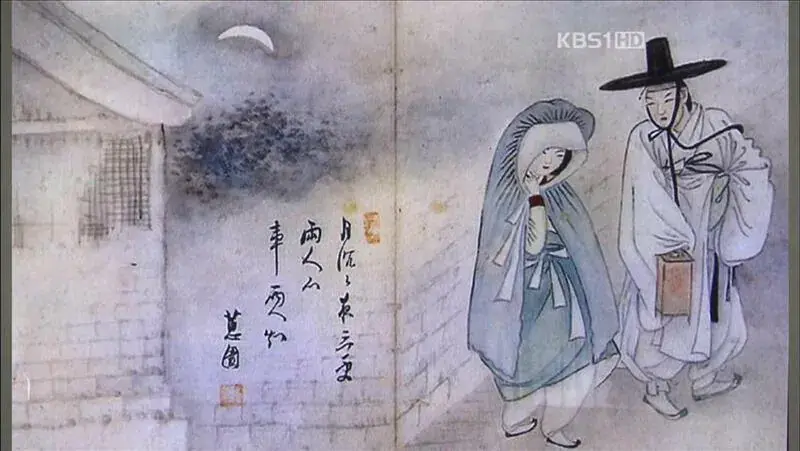 KBS1 HD
月沉〻夜三更
兩人心
事兩人知
蕙園